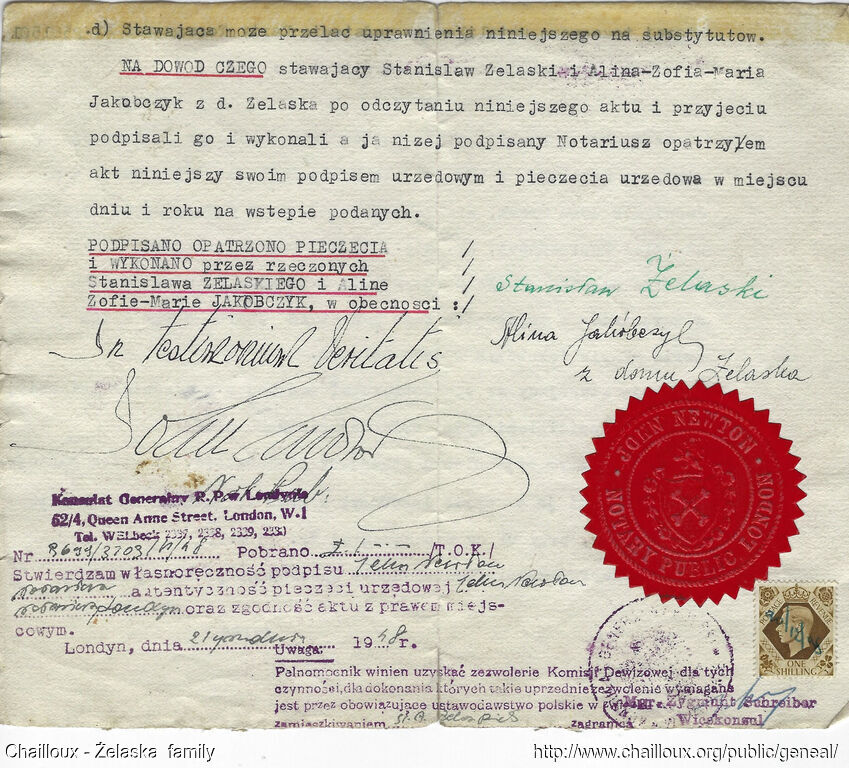 d) Stawajaca moze przelac uprawnienia niniejszego na substytutow.
NA DOWOD CZEGO stawajacy Stanislaw Zelaski i Alina-Zofia-Maria
Jakobczyk z d. Zelaska po odczytaniu niniejszego aktu i przyjeciu
podpisali go i wykonali a ja nizej podpisany Notariusz opatrzylem
akt niniejszy swoim podpisem urzedowym i pieczecia urzedowa w miejscu
dniu i roku na wstepie podanych.
PODPISANO OPATRZONO PIECZECIA /
i WYKONANO przez rzeczonych /
Stanislawa ZELASKIEGO i Aline /
Zofie-Marie JAKOBCZYK, w obecnosci :/
Stanisław Żelaski
Alina Jakóbczyk
z domu Żelaska
In Testimonium Veritatis
John Newton
Not. Pub.
JOHN NEWTON
NOTARY PUBLIC LONDON
Konsulat Generalny R.P. w Londynie
52/4, Queen Anne Street, London, W.1
Tel. WELbeck 2337, 2338, 2339, 233
Nr Pobrano £ /T.O.K./
Stwierdzam własnoręczność podpisu John Newton
notariusza autentyczność pieczęci urzędowej John Newton
notariusza Londyn oraz zgodność aktu z prawem miejs-
cowym.
Londyn, dnia 21 grudnia 1948 r.
Uwaga:
Pełnomocnik winien uzyskać zezwolenie Komisji Dewizowej dla tych
czynności, dla dokonania których takie uprzednie zezwolenie wymagane
jest przez obowiązujące ustawodawstwo polskie w
zamieszkiwaniem zagranicą
ONE
SHILLING
Mgr. Zygmunt Schreiber
Wicekonsul
Chailloux - Żelaska family
http://www.chailloux.org/public/geneal/